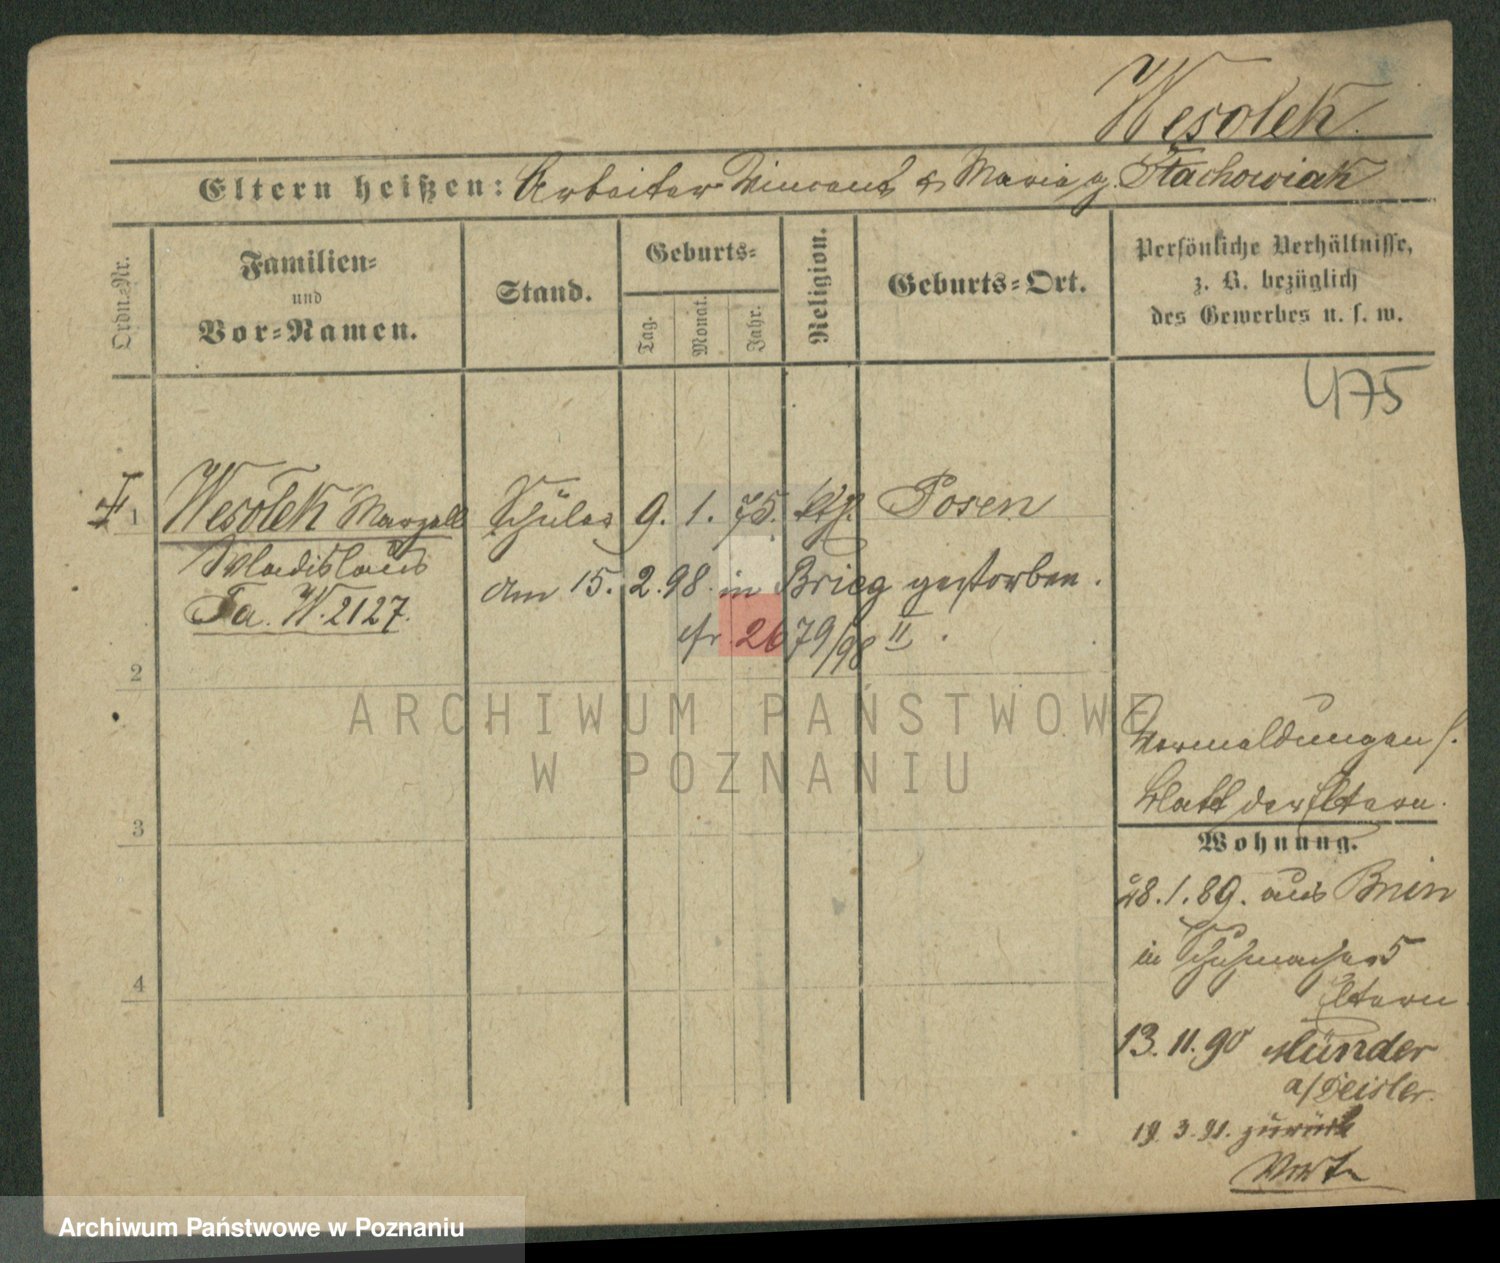 Wesolek.
Eltern heißen: Arbeiter Vincent & Maria g. Stachowiak
Ordn.Nr.
Familien- und Vor-Namen.
Stand.
Geburts-
Tag. Monat. Jahr.
Religion.
Geburts-Ort.
Persönliche Verhältnisse,
z. B. bezüglich
des Gewerbes u. s. w.
475
1 Wesolek Marzell Schüler 9. 1. 75. kth. Posen
Wladislaus
am 15. 2. 98. in Brieg gestorben.
Fa. W. 2127.
cfr 2679/98 II.
2
3
4
Vermeldungen s.
Blatt der Eltern.
Wohnung.
28.1.89. aus Bnin
in Schuhmacher 5
Eltern.
13. 11. 90 Münder
a/Deister.
19. 3. 91. zurück
ARCHIWUM PAŃSTWOWE
W POZNANIU
Archiwum Państwowe w Poznaniu